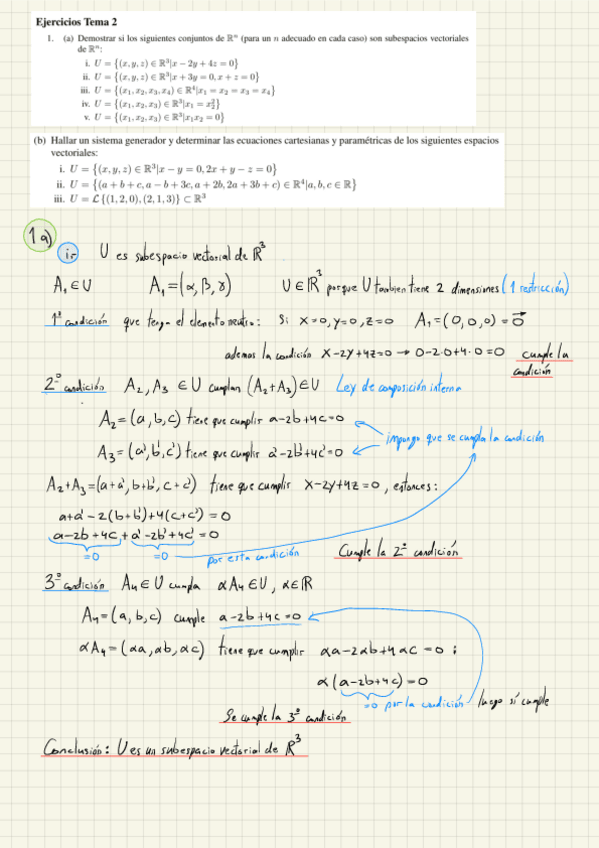 Ejercicios Tema 2
1. (a) Demostrar si los siguientes conjuntos de ℝⁿ (para un n adecuado en cada caso) son subespacios vectoriales
de ℝⁿ:
i. U = {(x, y, z) ∈ ℝ³|x − 2y + 4z = 0}
ii. U = {(x, y, z) ∈ ℝ³|x + 3y = 0, x + z = 0}
iii. U = {(x₁, x₂, x₃, x₄) ∈ ℝ⁴|x₁ = x₂ = x₃ = x₄}
iv. U = {(x₁, x₂, x₃) ∈ ℝ³|x₁ = x₂²}
v. U = {(x₁, x₂, x₃) ∈ ℝ³|x₁x₂ = 0}
(b) Hallar un sistema generador y determinar las ecuaciones cartesianas y paramétricas de los siguientes espacios
vectoriales:
i. U = {(x, y, z) ∈ ℝ³|x − y = 0, 2x + y − z = 0}
ii. U = {(a + b + c, a − b + 3c, a + 2b, 2a + 3b + c) ∈ ℝ⁴|a, b, c ∈ ℝ}
iii. U = ℒ{(1, 2, 0), (2, 1, 3)} ⊂ ℝ³
1a)
i- U es subespacio vectorial de ℝ³
A₁ ∈ U A₁ = (α, β, γ) U ∈ ℝ³ porque U tambien tiene 2 dimensiones (1 restricción)
1ª condición que tenga el elemento neutro: Si x=0, y=0, z=0 A₁ = (0, 0, 0) = 0⃗
ademas la condición x-2y+4z=0 → 0-2·0+4·0=0 cumple la
condición
2º condición A₂, A₃ ∈ U cumplan (A₂+A₃) ∈ U Ley de composición interna
A₂ = (a, b, c) tiene que cumplir a-2b+4c=0
impongo que se cumpla la condición
A₃ = (a', b', c') tiene que cumplir a'-2b'+4c'=0
A₂+A₃ = (a+a', b+b', c+c') tiene que cumplir x-2y+4z=0, entonces:
a+a'-2(b+b')+4(c+c')=0
a-2b+4c+a'-2b'+4c'=0
=0 =0 por esta condición Cumple la 2º condición
3º condición A₄ ∈ U cumpla αA₄ ∈ U, α ∈ ℝ
A₄ = (a, b, c) cumple a-2b+4c=0
αA₄ = (αa, αb, αc) tiene que cumplir αa-2αb+4αc=0;
α(a-2b+4c)=0
=0 por la condición luego sí cumple
Se cumple la 3º condición
Conclusión: U es un subespacio vectorial de ℝ³